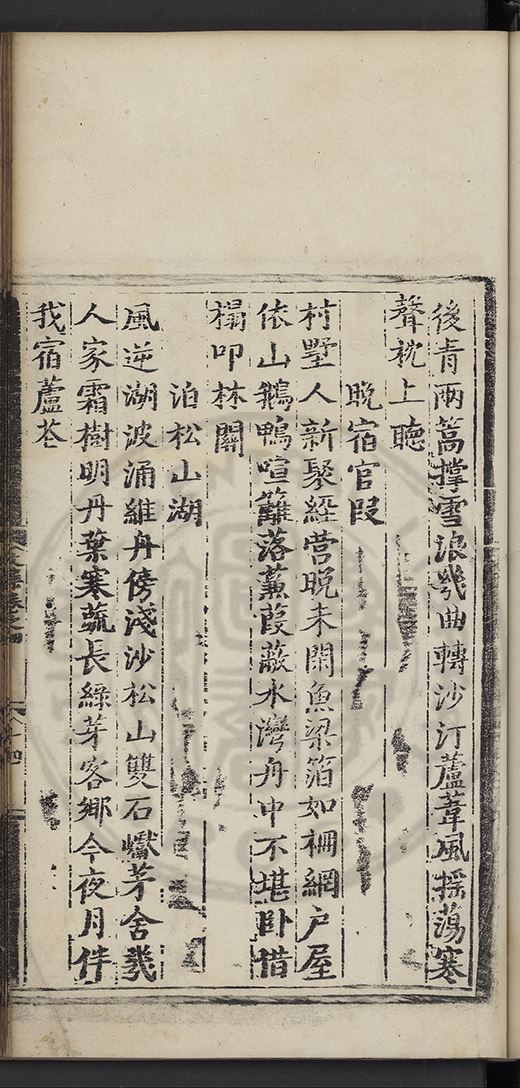 後青兩篙撑雪浪幾曲轉沙汀蘆葦風揺蕩寒
聲枕上聽
晚宿官段
村墅人新聚經營晚未閑魚梁箔如柵網戶屋
依山鵝鴨喧籬落蒹葭蔽水灣舟中不堪卧借
榻叩林關
泊松山湖
風逆湖波涌維舟傍淺沙松山雙石巘茅舍幾
人家霜樹明丹葉寒蔬長綠芽客鄉今夜月伴
我宿蘆花